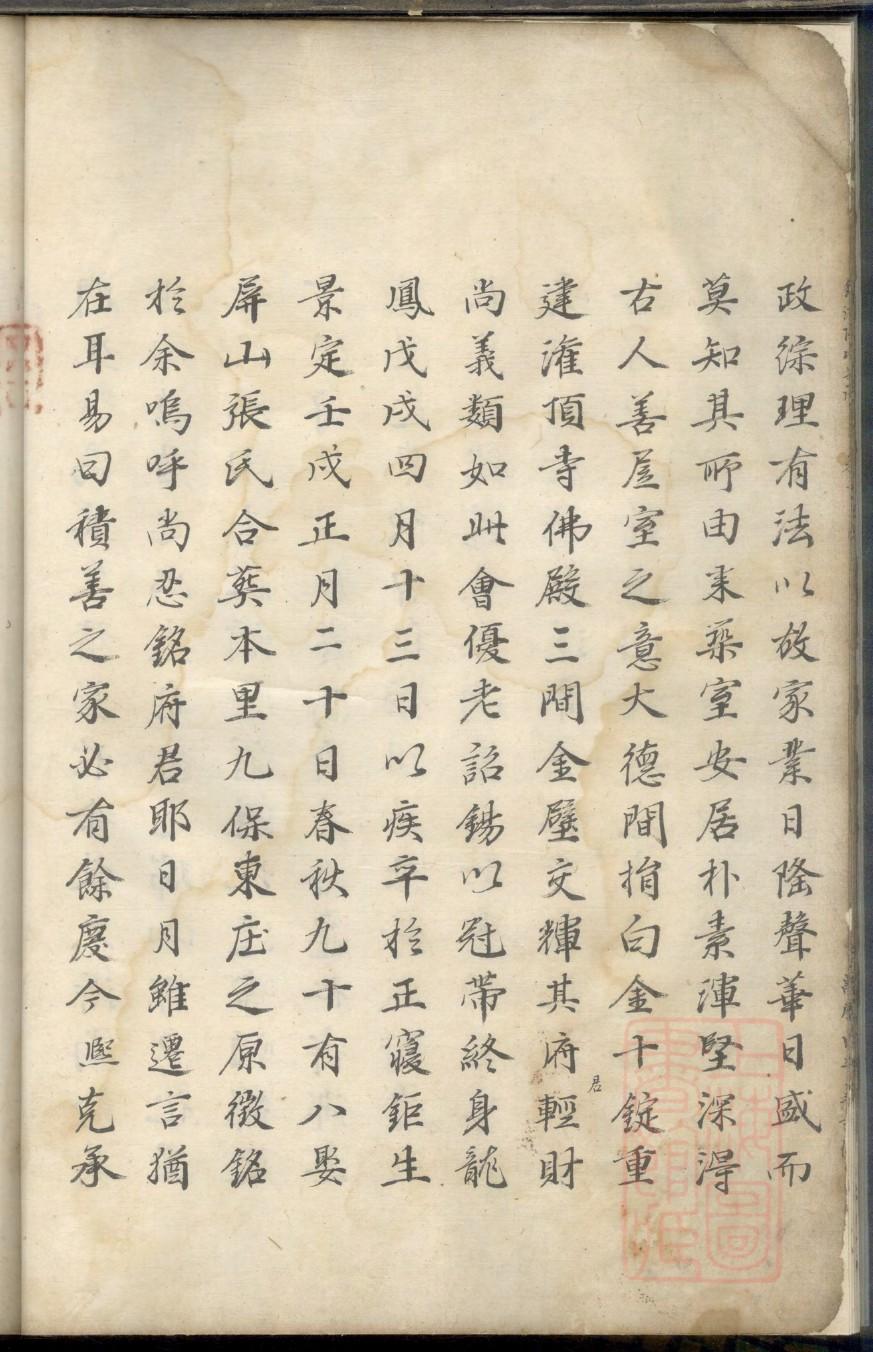 政綜理有法以故家業日隆聲華日盛而
莫知其所由来築室安居朴素渾堅深淂
古人善居室之意大德間捐白金十錠重
建潅頂寺佛殿三間金壁交輝其府君輕財
尚義類如此會優老詔錫以冠帶終身龍
鳳戊戌四月十三日以疾卒於正寢鉅生
景定壬戌正月二十日春秋九十有八娶
屏山張氏合葬本里九保東庄之原徵銘
於余嗚呼尚忍銘府君耶日月雖遷言猶
在耳易曰積善之家必有餘慶今熙克承